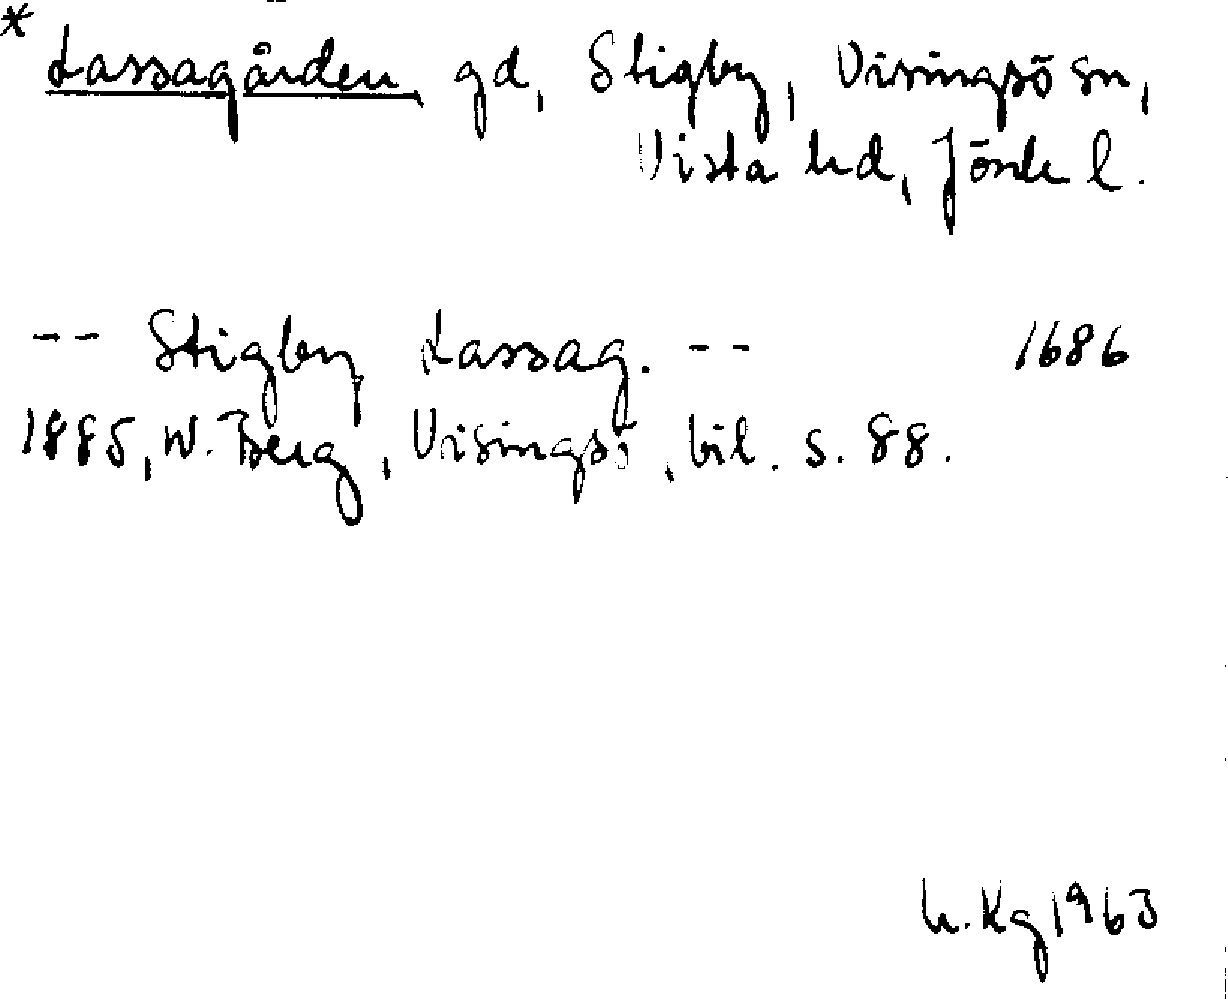 * Lassagården gd, Stigby, Visingsö sn,
Vista hd, Jönk l.
-- Stigby Lassag. -- 1686
1885, W. Berg, Visingsö, bil. s. 88.
h. Kg 1963